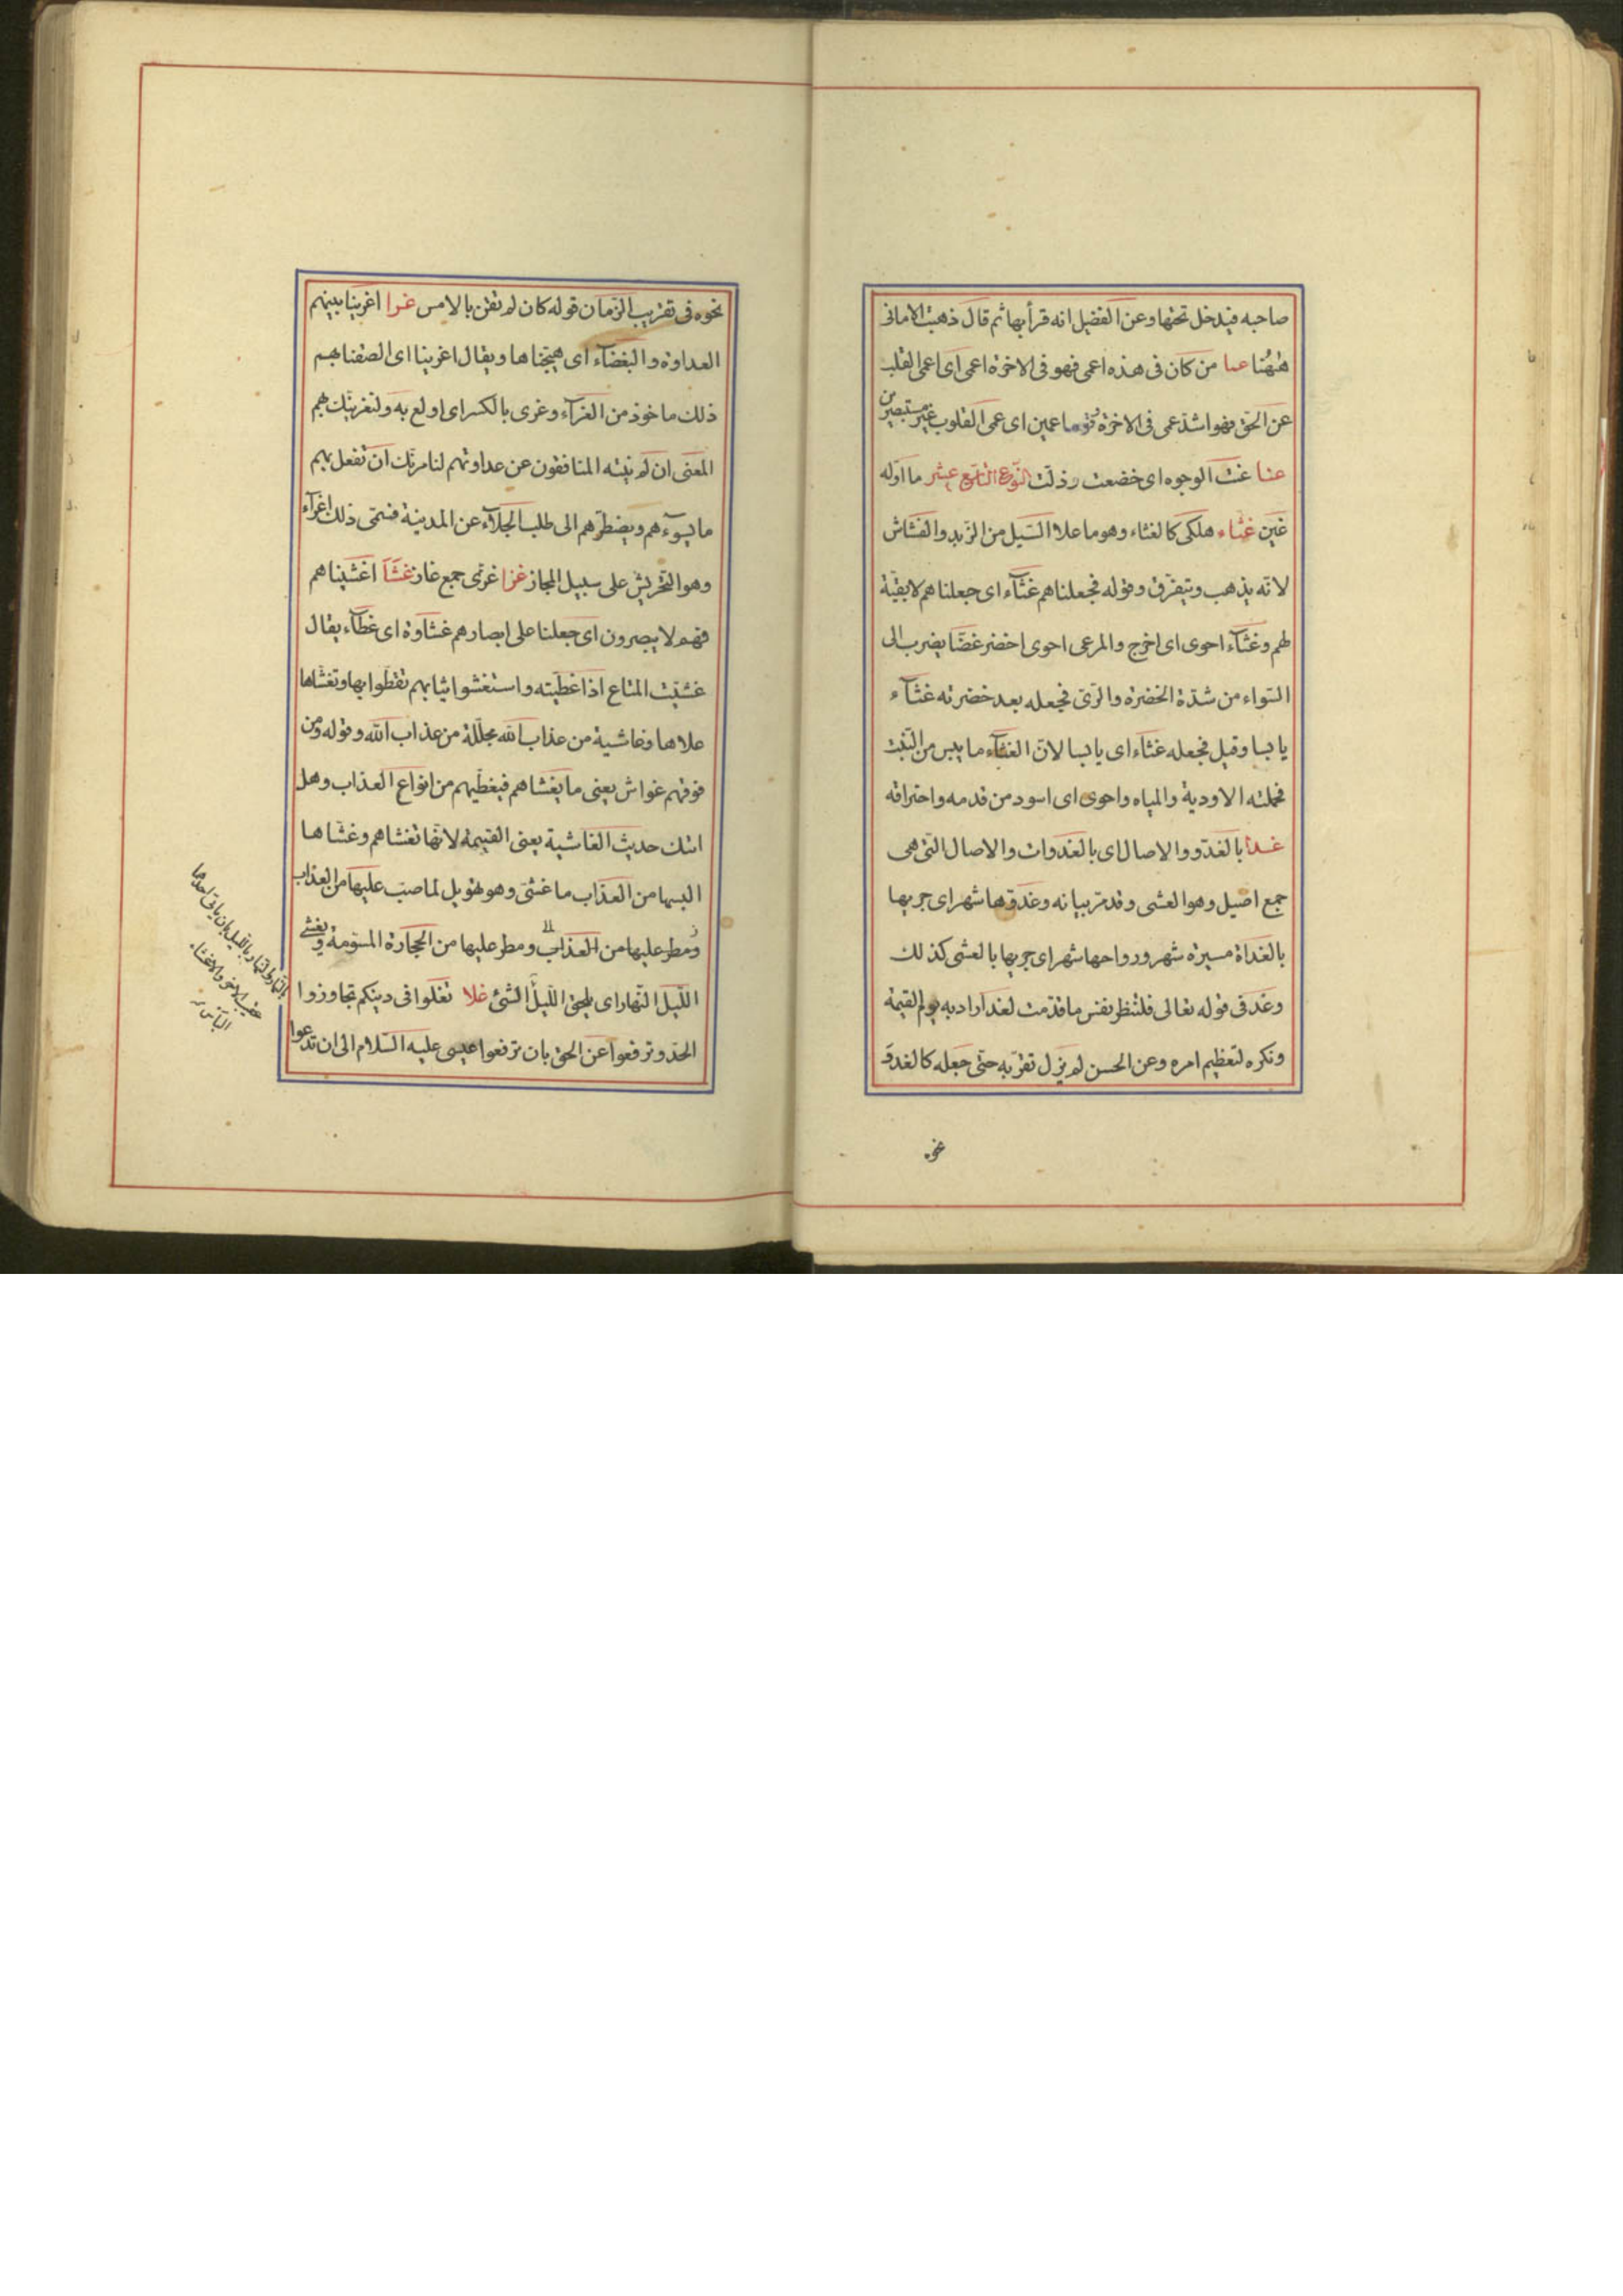 صاحبه فيدخل تحتها وعن الفضيل انه قرأ بها ثم قال ذهبت الامانى
ههُنا عما من كان فى هذه اعمى فهو فى الاخرة اعمى اى اعمى القلب
عن الحق فهو اشدّ عمى فى الاخرة قوما عمين اى عمى القلوب غير مستبصرين
عنا عنت الوجوه اى خضعت وذلت النّوع التاسع عشر ما اوّله
غين غثاء هلكى كالغثاء وهو ما علا السّيل من الزّبد والقشاش
لانّه يذهب ويتفرّق وقوله فجعلناهم غثآء اى جعلناهم لا بقيّة
لهم وغثآء احوى اى اخرج والمرعى احوى اخضر غضّا يضرب الى
السّواء من شدّة الخضرة والرّى فجعله بعد خضرته غثآء
يابسا وقيل فجعله غثاء اى يابسا لانّ الغثآء ما يبس من النّبت
فحملته الاودية والمياه واحوى اى اسود من قدمه واحتراقه
غدا بالغدوّ والاصال اى بالغدوات والاصال التى هى
جمع اصيل وهو العشى وقد مرّ بيانه وغدوّها شهر اى جريها
بالغداة مسيرة شهر ورواحها شهر اى جريها بالعشى كذلك
وغد فى قوله تعالى فلتنظر نفس ما قدّمت لغد اراد به يوم القيمة
ونكره لتعظيم امره وعن الحسن لم يزل تقرّبه حتّى جعله كالغد و
نحو.
نحوه فى تقريب الزمان قوله كان لم تغن بالامس غرا اغرينا بينهم
العداوة والبغضآء اى هيّجناها ويقال اغرينا اى الصقنا بهم
ذلك ماخوذ من الغرآء وغرى بالكسر اى اولع به ولنغرينّك بهم
المعنى ان لم ينته المنافقون عن عداوتهم لنامرنّك ان تفعل بهم
ما يسوءهم ويضطرّهم الى طلب الجلآء عن المدينة فسمّى ذلك اغرآء
وهو التّحريش على سبيل المجاز غزا غزّى جمع غاز غشّا اغشيناهم
فهم لا يبصرون اى جعلنا على ابصارهم غشاوة اى غطآء يقال
غشيّت المتاع اذا غطّيته واستغشوا ثيابهم تغطّوا بها وتغشّاها
علاها وغاشية من عذاب الله مجلّلة من عذاب الله وقوله ومن
فوقهم غواش يعنى ما يغشاهم فيغطّيهم من انواع العذاب وهل
اتك حديث الغاشية يعنى القيمة لانّها تغشاهم وغشّاها
البسها من العذاب ما غشّى وهو تهويل لما صبّ عليها من العذاب
ومطر عليها من العذاب ومطر عليها من الحجارة المسوّمة و يغشى
اللّيل النّهار اى يلحق اللّيل الشئ غلا تغلوا فى دينكم تجاوزوا
الحدّ وترفعوا عن الحق بان ترفعوا عيسى عليه السّلام الى ان تدعوا
بالنّهار والنّهار باللّيل بان ياتى احدهما
عقيب الاخر والاغشاء